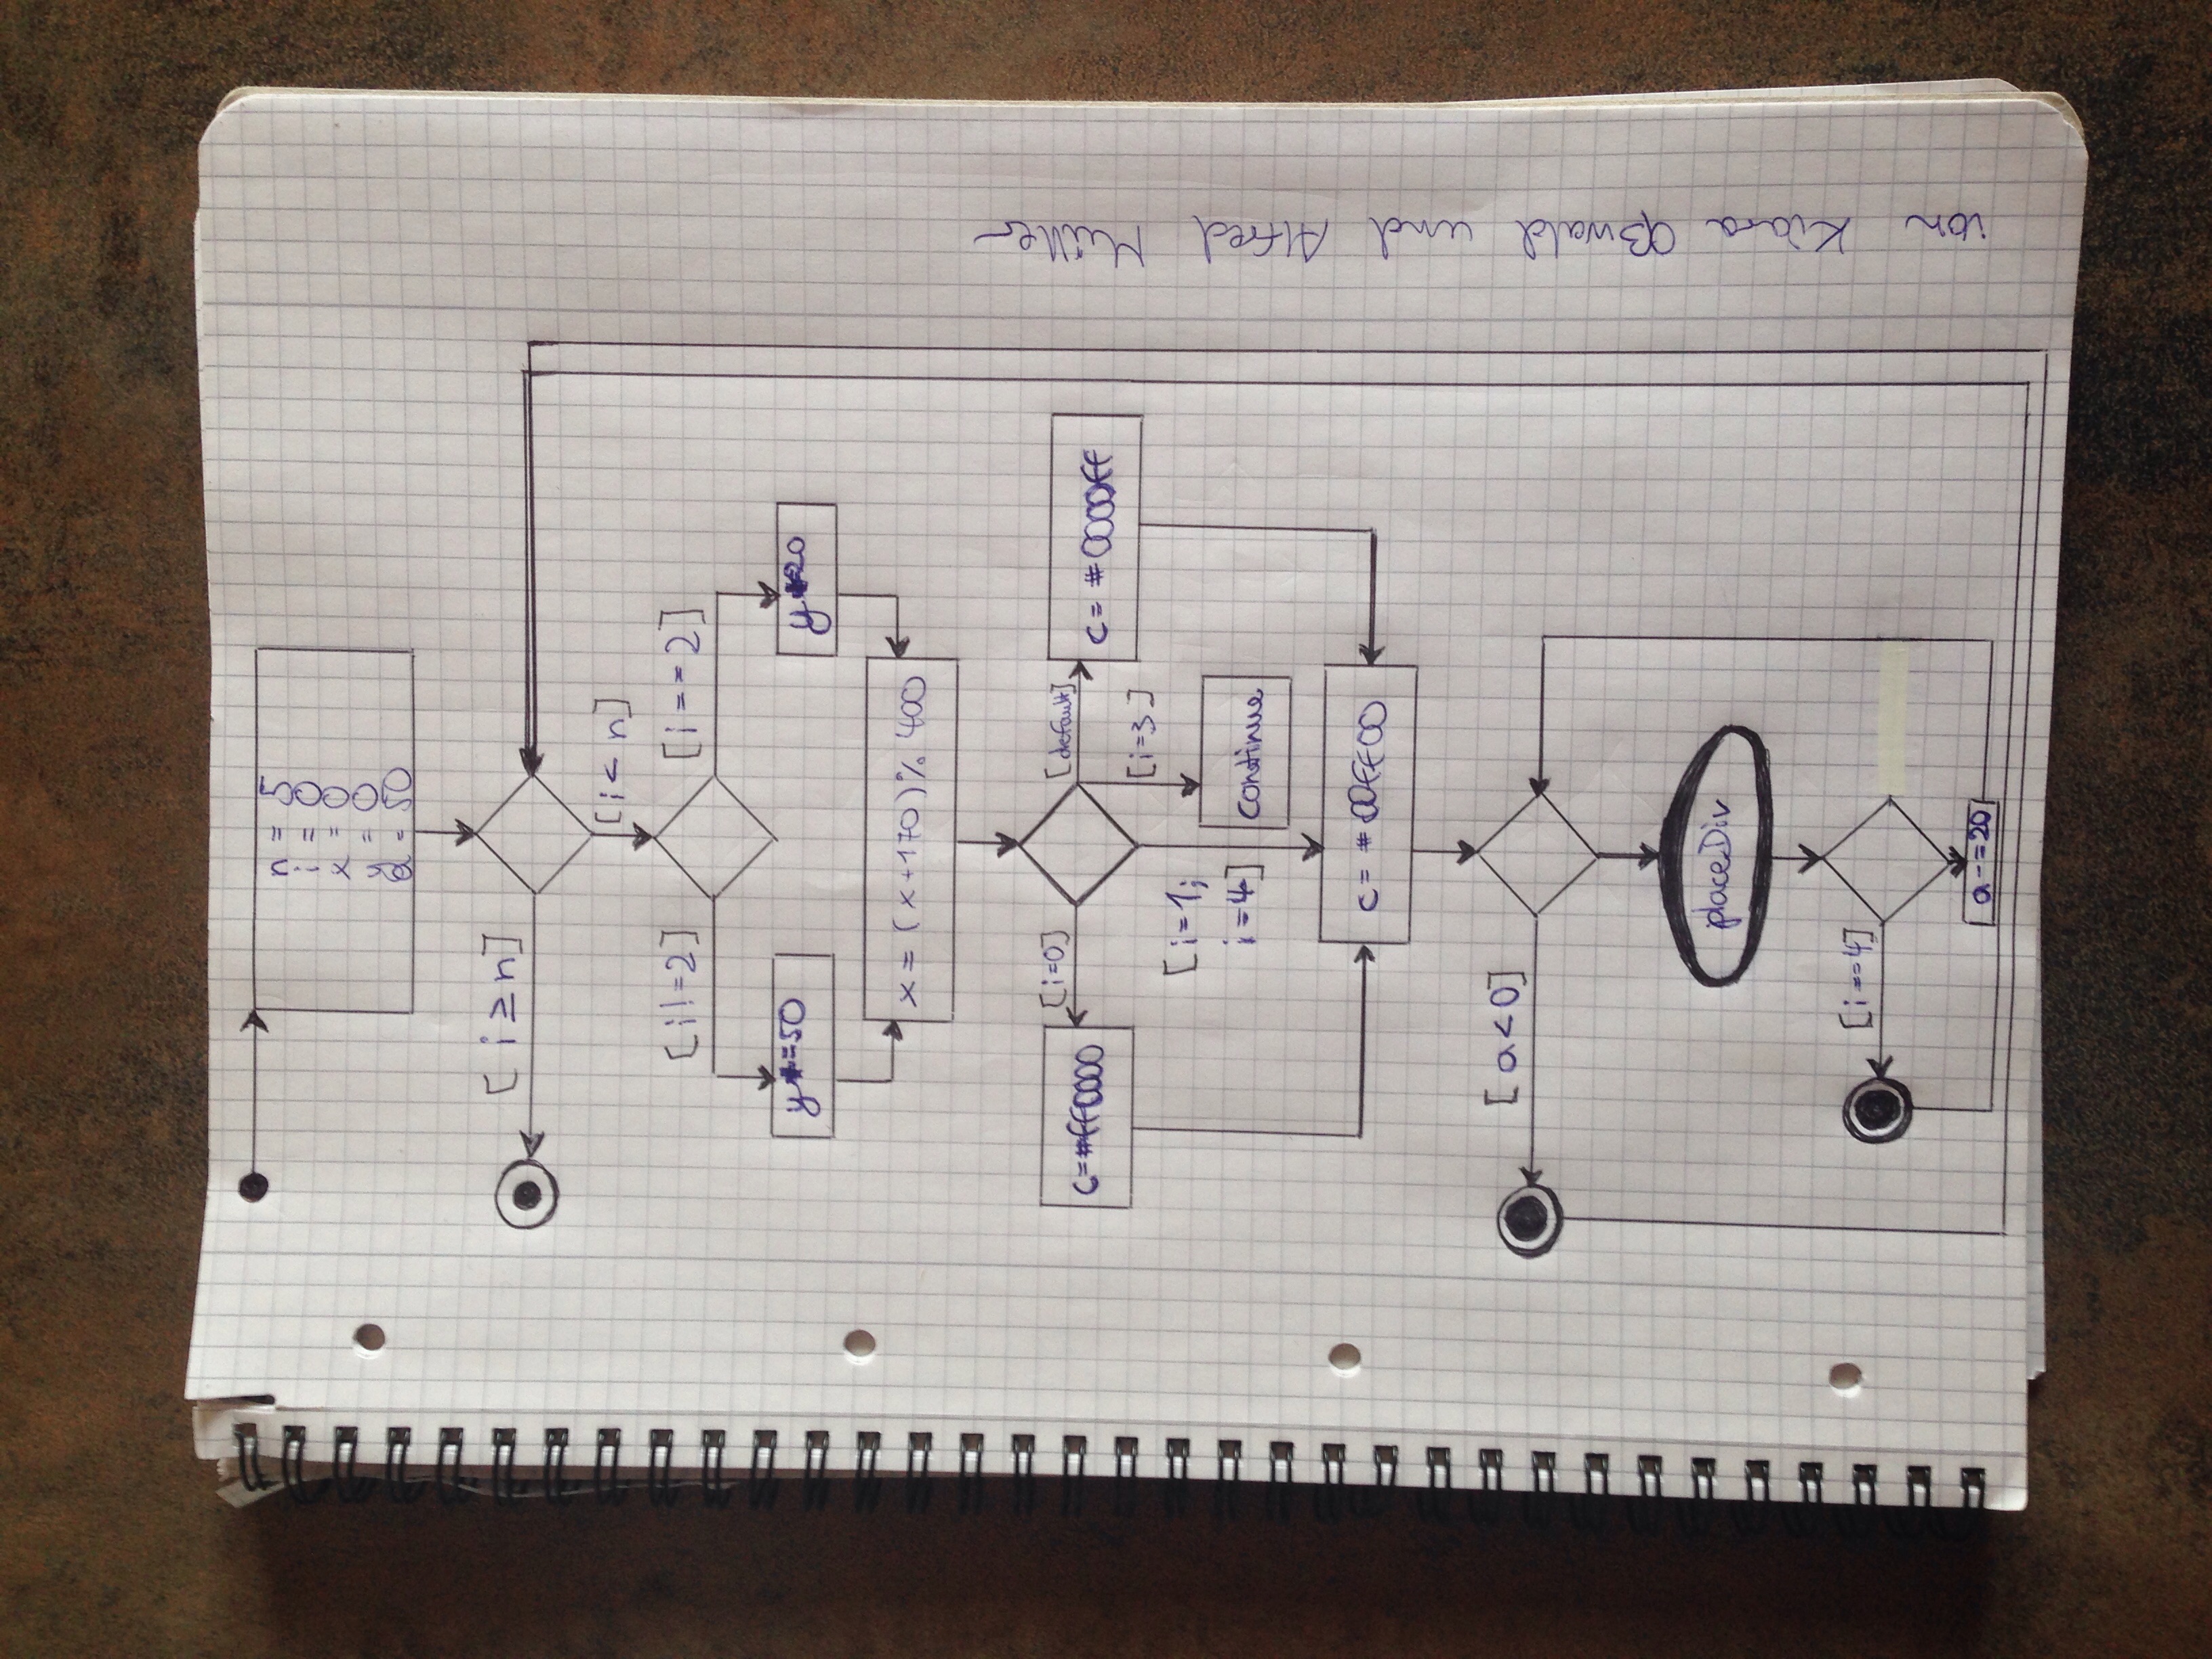 n = 5
i = 0
x = 0
y = 0
a = 50
[ i ≥ n]
[i < n]
[i!=2]
[i == 2]
x = (x+170)% 400
[i=0]
[default]
c=#ff0000
c= #0000ff
[i=3]
[i=1;
i=4]
continue
c= #00ff00
[ a<0]
placeDiv
[i==4]
a-=20
von Kiara Oßwald und Alfred Müller